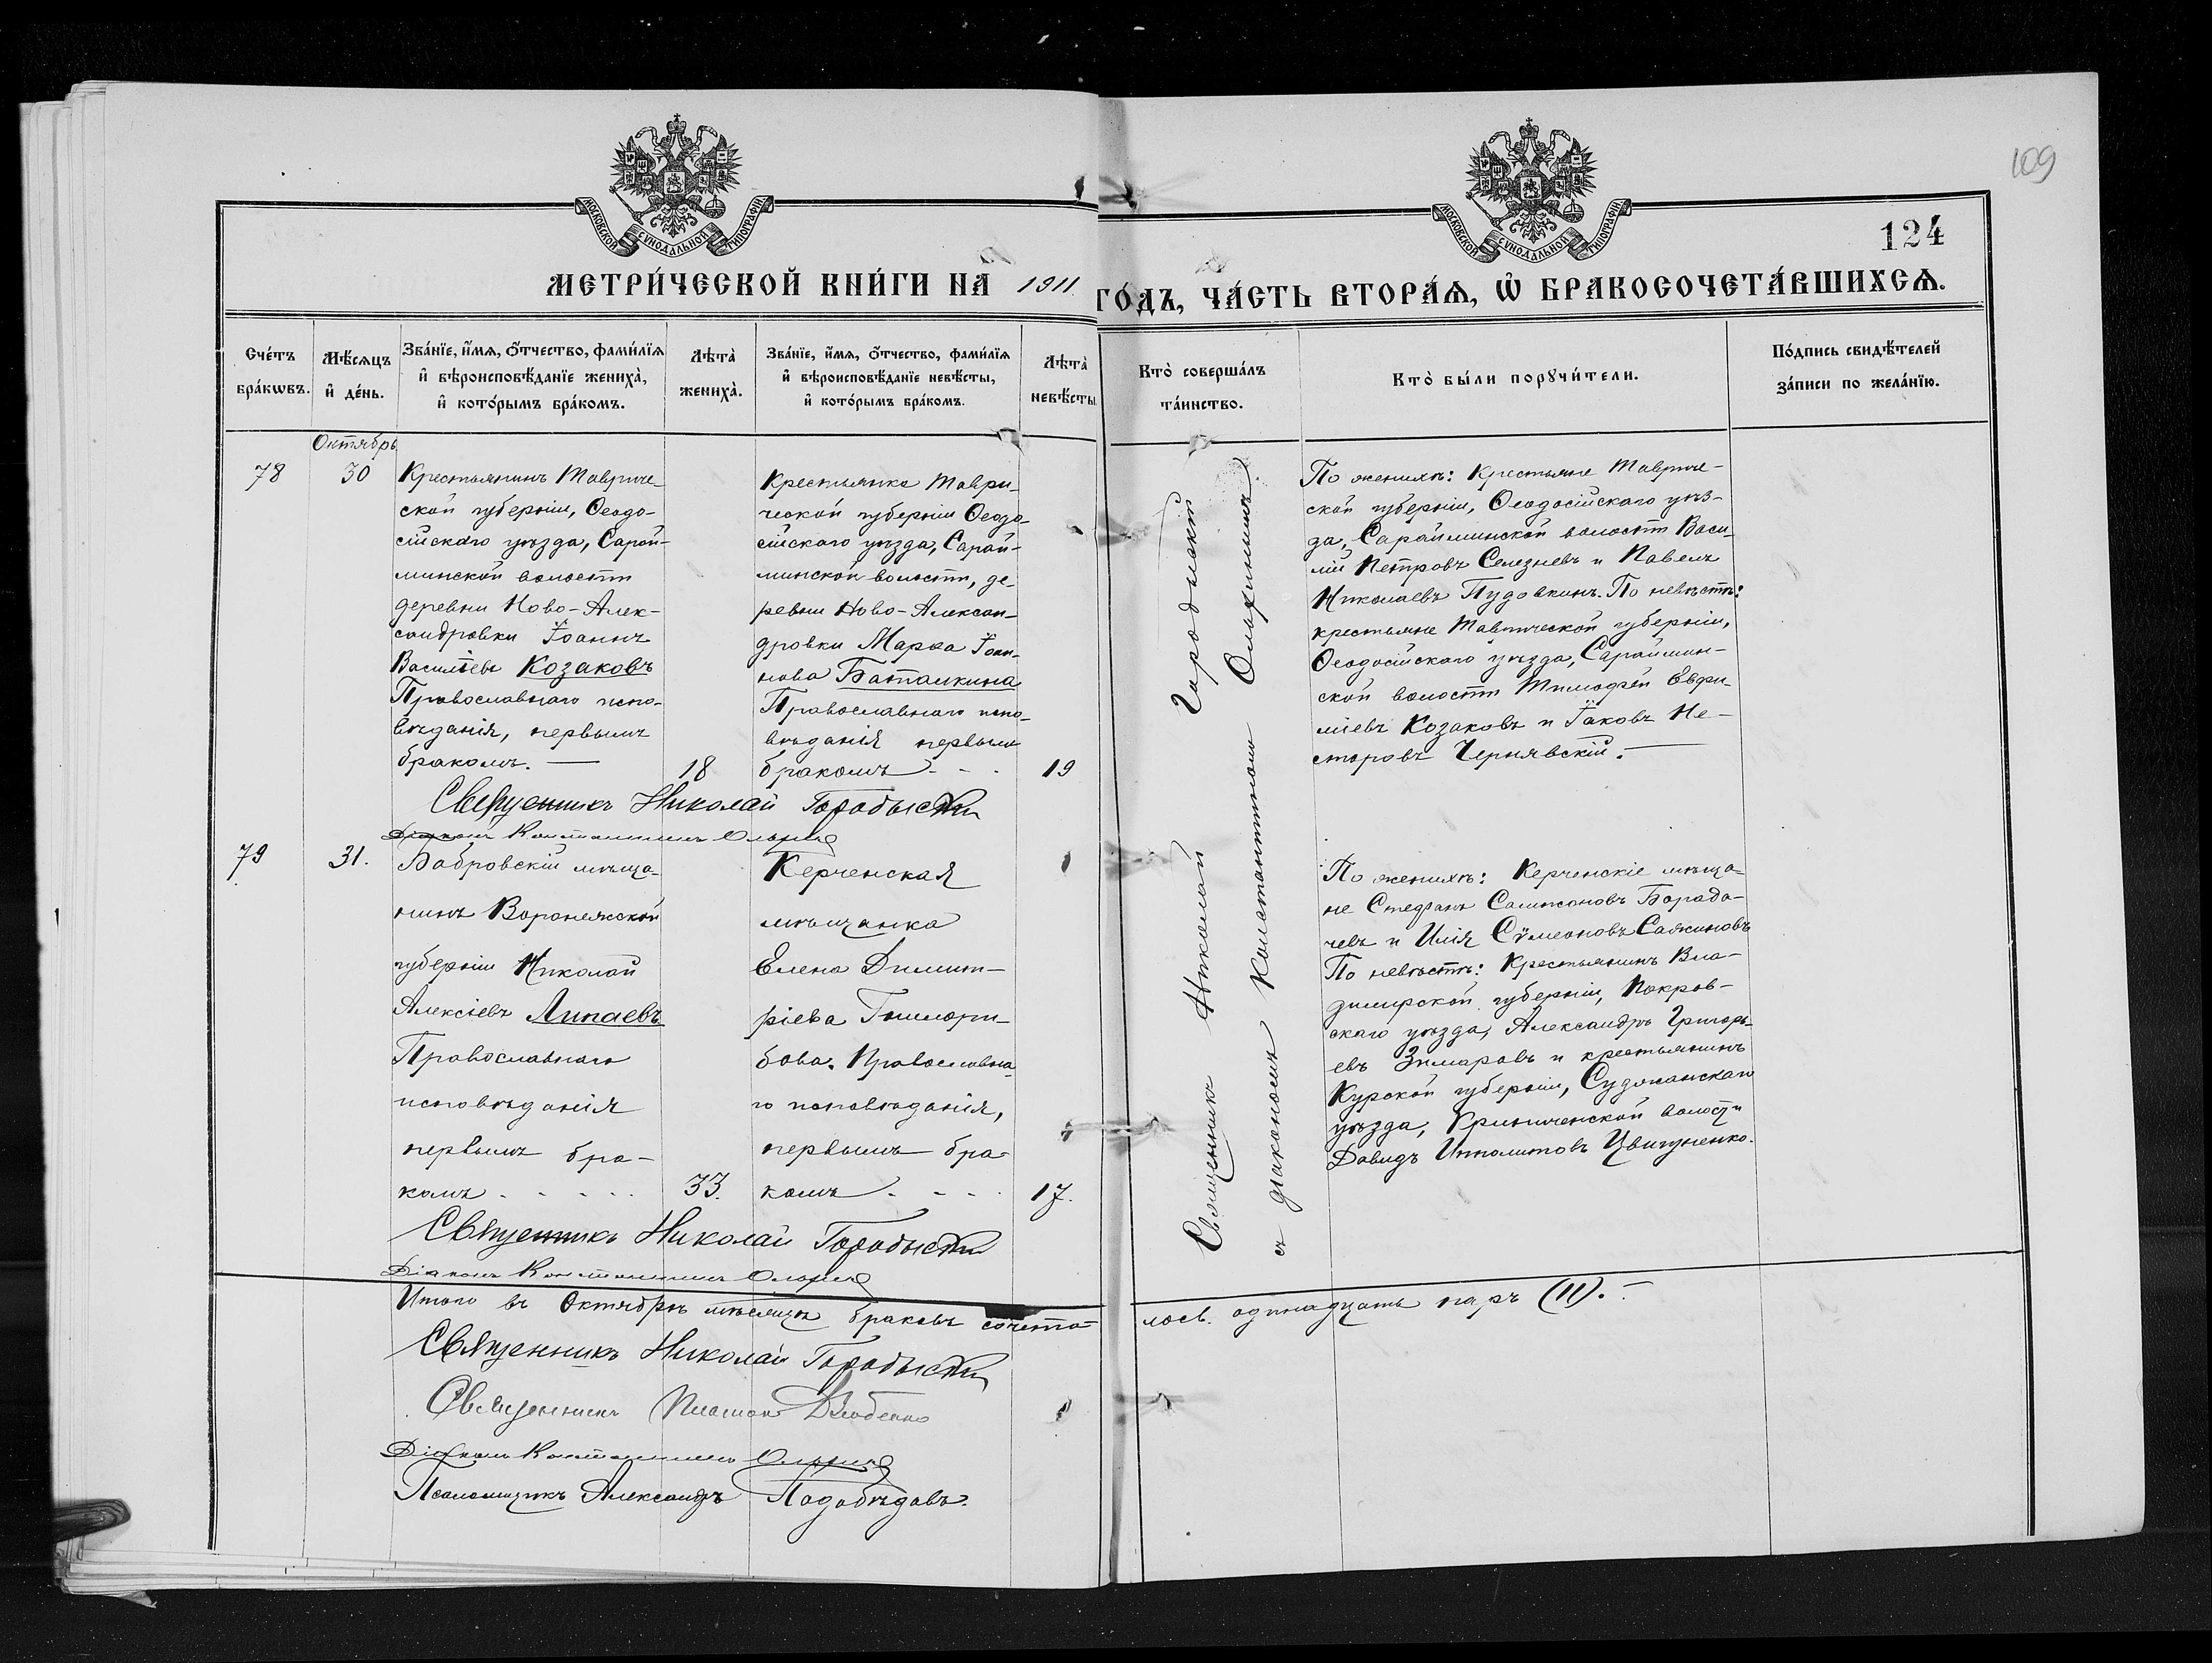 109
124
МОСКОВСКОЙ СѴНОДАЛЬНОЙ ТИПОГРАФІИ
МОСКОВСКОЙ СѴНОДАЛЬНОЙ ТИПОГРАФІИ
МЕТРИ́ЧЕСКОЙ КНИ́ГИ НА 1911 ГО́ДЪ, ЧА́СТЬ ВТОРА́Ѧ, Ѽ БРАКОСОЧЕТА́ВШИХСѦ.
Сче́тъ
бра́кѡвъ.
Мѣ́сѧцъ
и҆ де́нь.
Зва́нїе, и҆́мѧ, ѻ҆́тчество, фами́лїѧ
и҆ вѣроисповѣ́данїе жениха̀,
и҆ кото́рымъ бра́комъ.
Лѣта̀
жениха̀.
Зва́нїе, и҆́мѧ, ѻ҆́тчество, фами́лїѧ
и҆ вѣроисповѣ́данїе невѣ́сты,
и҆ кото́рымъ бра́комъ.
Лѣта̀
невѣ́сты
Кто̀ соверша́лъ
та́инство.
Кто̀ бы́ли порꙋчи́тели.
По́дпись свидѣ́телей
за́писи по жела́нїю.
Октябрь
78
30
Крестьянинъ Тавриче-
ской губерніи, Ѳеодо-
сійскаго уѣзда, Сарай-
минской волости
деревни Ново-Алек-
сандровки Іоаннъ
Васильевъ Козаковъ
Православнаго испо-
вѣданія, первымъ
бракомъ. —
18
Крестьянка Таври-
ческой губерніи Ѳеодо-
сійскаго уѣзда, Сарай-
минской волости, де-
ревни Ново-Алексан-
дровки Марѳа Іоан-
нова Баталкина
Православнаго испо-
вѣданія первымъ
бракомъ - - .
19
Священникъ Николай Городыскій
Діаконъ Константинъ
Священникъ Николай Городыскій
съ діакономъ Константиномъ
По женихѣ: крестьяне Тавриче-
ской губерніи, Ѳеодосійскаго уѣз-
да, Сарайминской волости Васи-
лій Петровъ Селезневъ и Павелъ
Николаевъ Пудовкинъ. По невѣстѣ:
крестьяне Тавпической губерніи,
Ѳеодосійскаго уѣзда, Сараймин-
ской волости Тимоѳей Евфи-
міевъ Козаковъ и Іаковъ Не-
сторовъ Чернявскій. —
79
31.
Бобровскій мѣща-
нинъ Воронежской
губерніи Николай
Алексіевъ Липаевъ
Православнаго
исповѣданія
первымъ бра-
комъ - - - . .
33.
Керченская
мѣщанка
Елена Димит-
ріева
Православна-
го исповѣданія,
первымъ бра-
комъ . - - .
17.
По женихѣ: Керченскіе мѣща-
не Стефанъ Сампсоновъ Борода-
чевъ и Илія Сѵмеоновъ Сажиновъ
По невѣстѣ: крестьянинъ Вла-
димирской губерніи, Покров-
скаго уѣзда, Александръ Григорь-
евъ Зимаровъ и крестьянинъ
Курской губерніи, Суджанскаго
уѣзда, Криниченской волости
Давидъ Ипполитовъ Цвигуненко.
Священникъ Николай Городыскій
Діаконъ Константинъ
Итого въ Октябрѣ мѣсяцѣ браковъ сочета-лось. одинадцать паръ (11). -
Священникъ Николай Городыскій
Священникъ Платонъ
Діаконъ Константинъ
Псаломщикъ Александръ Подобѣдовъ.